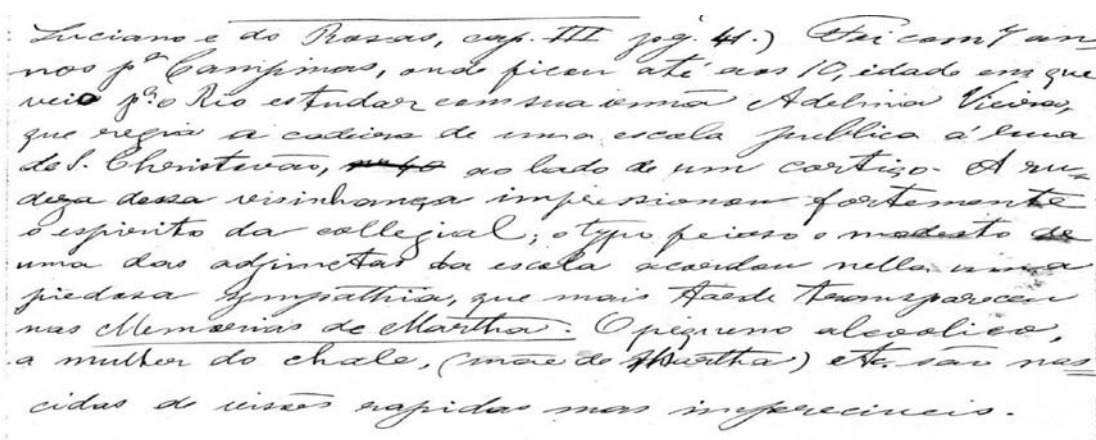 Luciano e do Rosas, cap. III pg. 41.) Foi com 7 an-
nos pª Campinas, onde ficou até aos 10, edade em que
veio pª o Rio estudar com sua irmã Adelina Vieira,
que regia a cadeira de uma escola publica á rua
de S. Christovão, ao lado de um cortiço. A ru-
deza dessa visinhança impressionou fortemente
o espirito da collegial; o typo feioso e modesto de
uma das adjunctas da escola acordou nella uma
piedosa sympathia, que mais tarde transpareceu
nas Memorias de Martha. O pequeno alcoolico,
a mulher do chale, (mãe de Martha) etc. são nas
cidas de visões rapidas mas impereciveis.